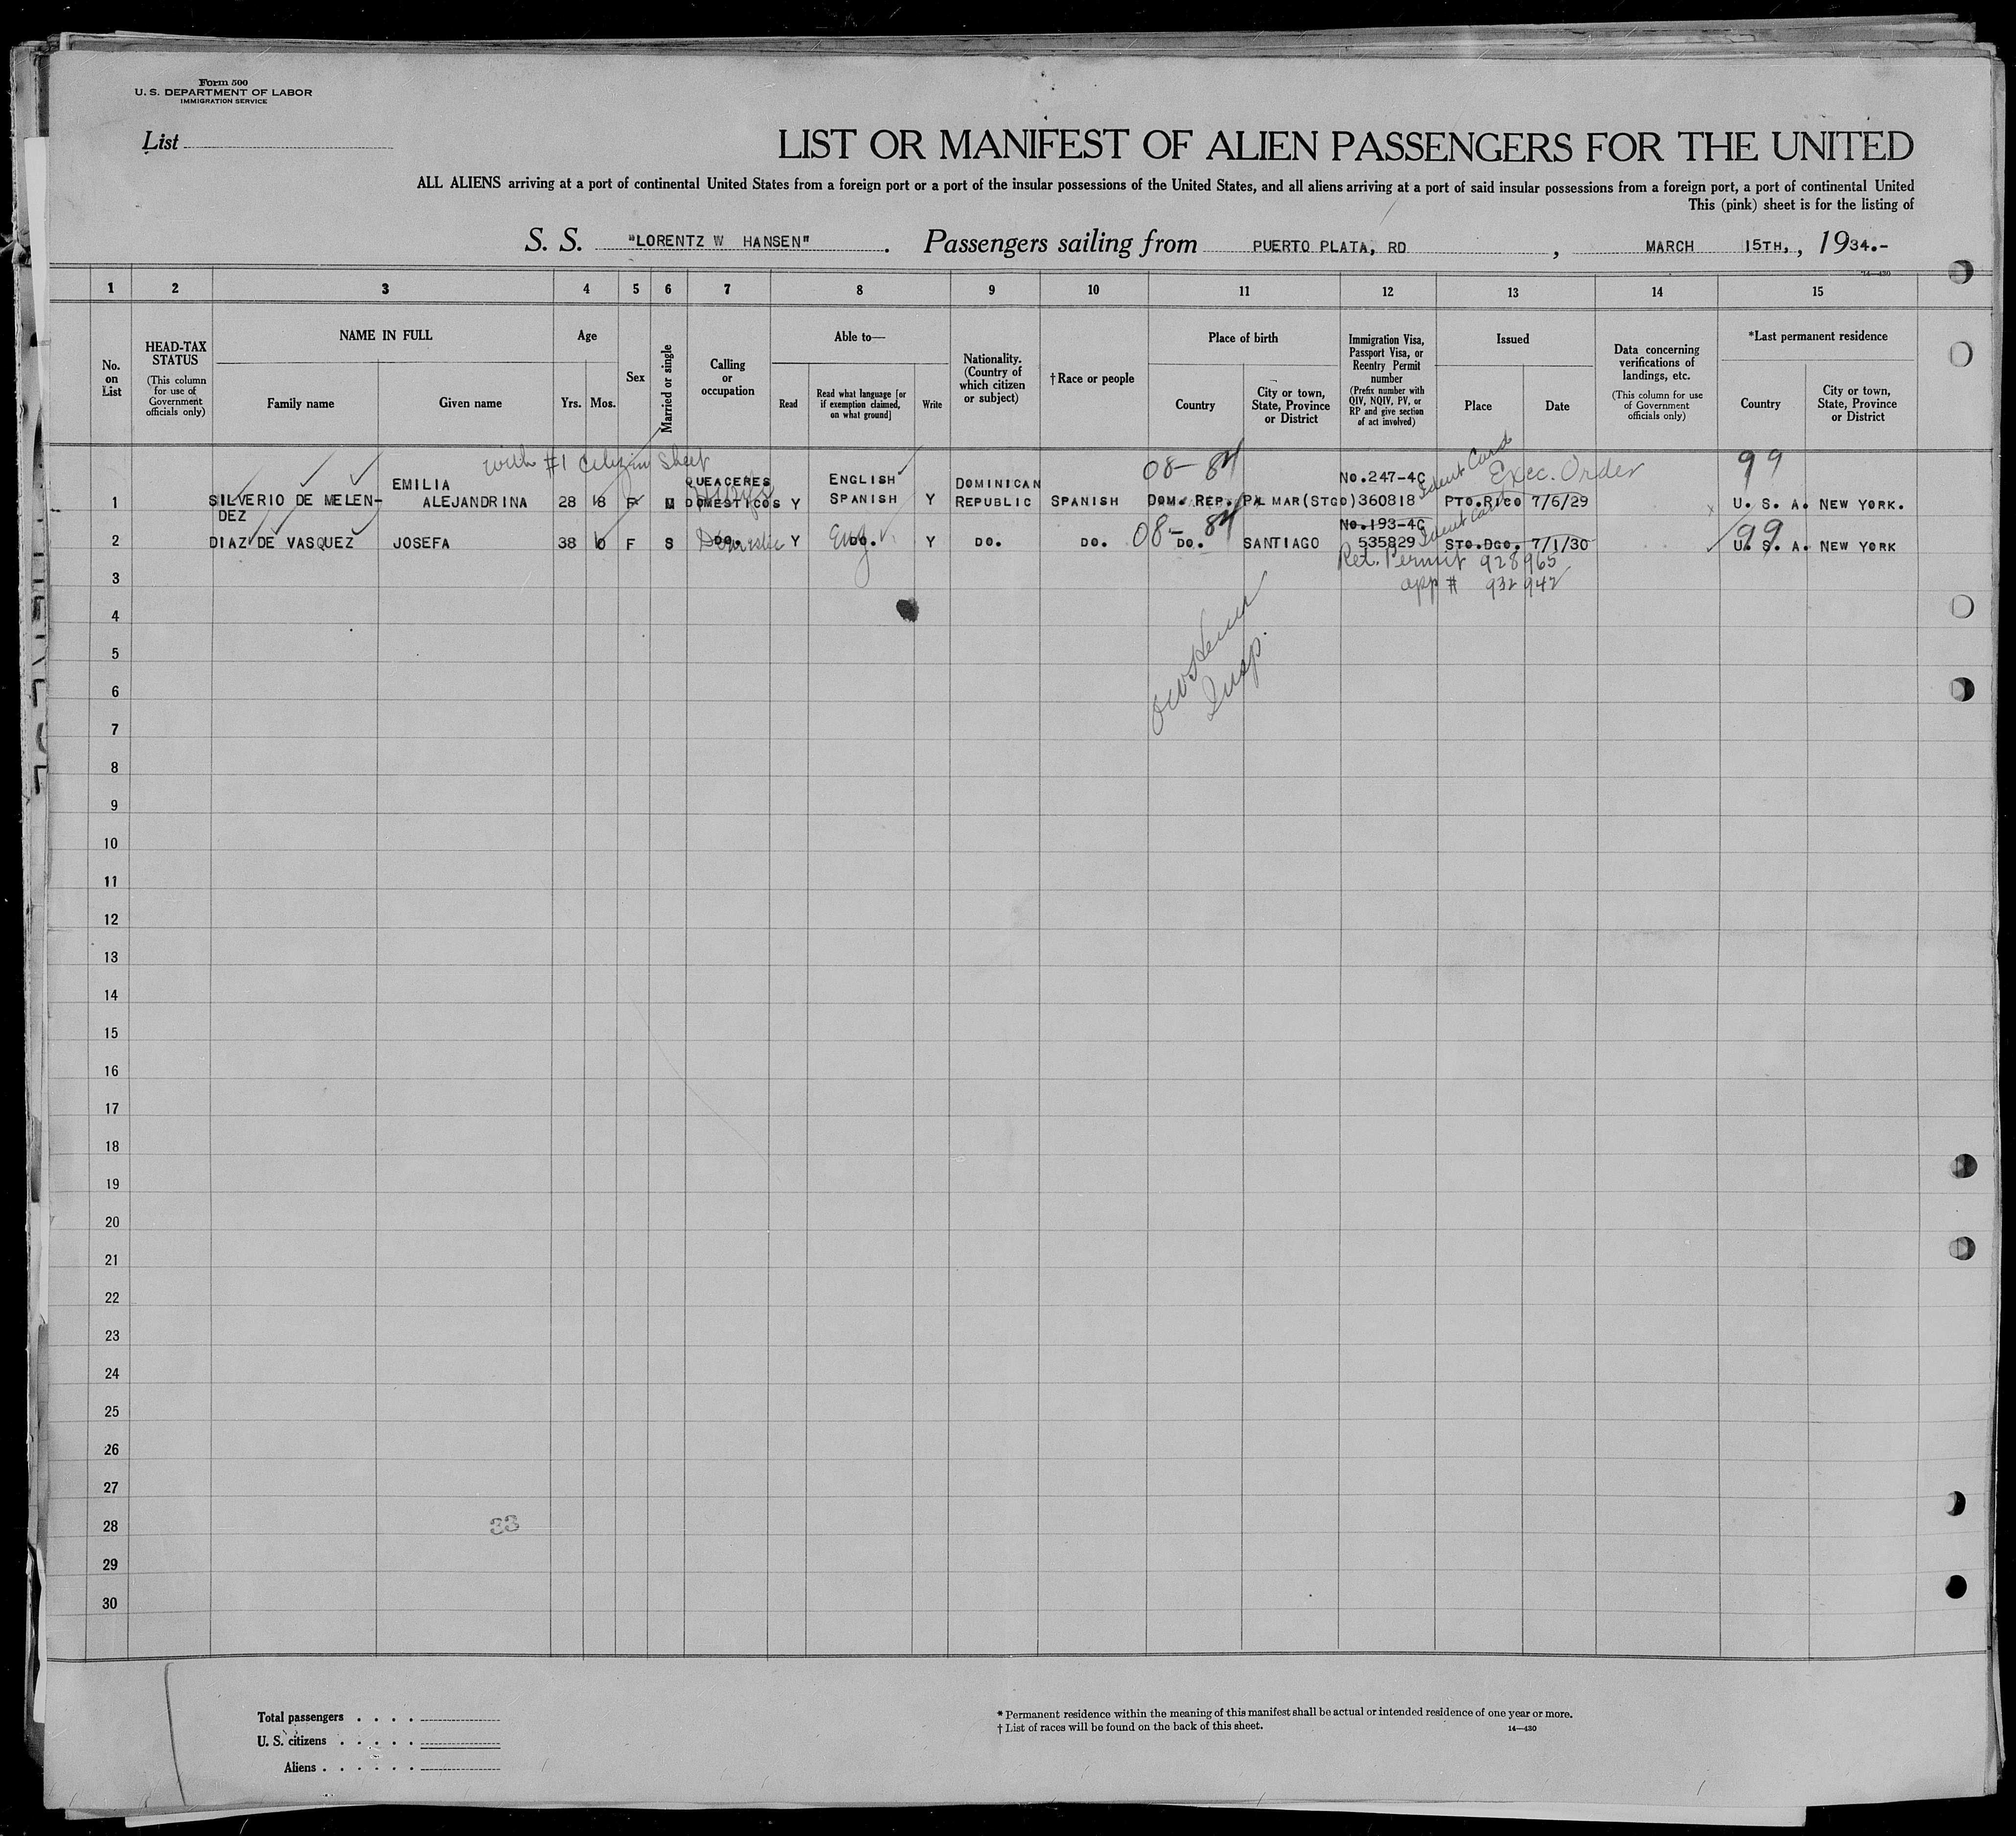 Form 500
U. S. DEPARTMENT OF LABOR
IMMIGRATION SERVICE
List
LIST OR MANIFEST OF ALIEN PASSENGERS FOR THE UNITED
ALL ALIENS arriving at a port of continental United States from a foreign port or a port of the insular possessions of the United States, and all aliens arriving at a port of said insular possessions from a foreign port, a port of continental United
This (pink) sheet is for the listing of
S. S. "LORENTZ W HANSEN". Passengers sailing from PUERTO PLATA, RD, MARCH 15TH,, 1934.-
14—430
1 2 3 4 5 6 7 8 9 10 11 12 13 14 15
No. on List
HEAD-TAX STATUS
(This column for use of Government officials only)
NAME IN FULL
Family name
Given name
Age
Yrs.
Mos.
Sex
Married or single
Calling or occupation
Able to—
Read
Read what language [or if exemption claimed, on what ground]
Write
Nationality. (Country of which citizen or subject)
†Race or people
Place of birth
Country
City or town, State, Province or District
Immigration Visa, Passport Visa, or Reentry Permit number
(Prefix number with QIV, NQIV, PV, or RP and give section of act involved)
Issued
Place
Date
Data concerning verifications of landings, etc.
(This column for use of Government officials only)
*Last permanent residence
Country
City or town, State, Province or District
with #1 citizen sheet
08- 84
Ident Card
Exec. Order
99
1 SILVERIO DE MELEN-DEZ EMILIA ALEJANDRINA 28 8 F M QUEACERES DOMESTICOS Y ENGLISH SPANISH Y DOMINICAN REPUBLIC SPANISH DOM. REP. PAL MAR(STGO) No.247-4C 360818 PTO.RICO 7/6/29 U. S. A. NEW YORK.
08- 84
Ident Card
99
2 DIAZ DE VASQUEZ JOSEFA 38 0 F S DO. Y DO. Eng. Y DO. DO. DO. SANTIAGO No.193-4C 535829 STO.DGO. 7/1/30 U. S. A. NEW YORK
Ret. Permit 928965
app # 932942
3
4
5
Insp.
6
7
8
9
10
11
12
13
14
15
16
17
18
19
20
21
22
23
24
25
26
27
28
33
29
30
Total passengers
U. S. citizens
Aliens
* Permanent residence within the meaning of this manifest shall be actual or intended residence of one year or more.
† List of races will be found on the back of this sheet.
14—430